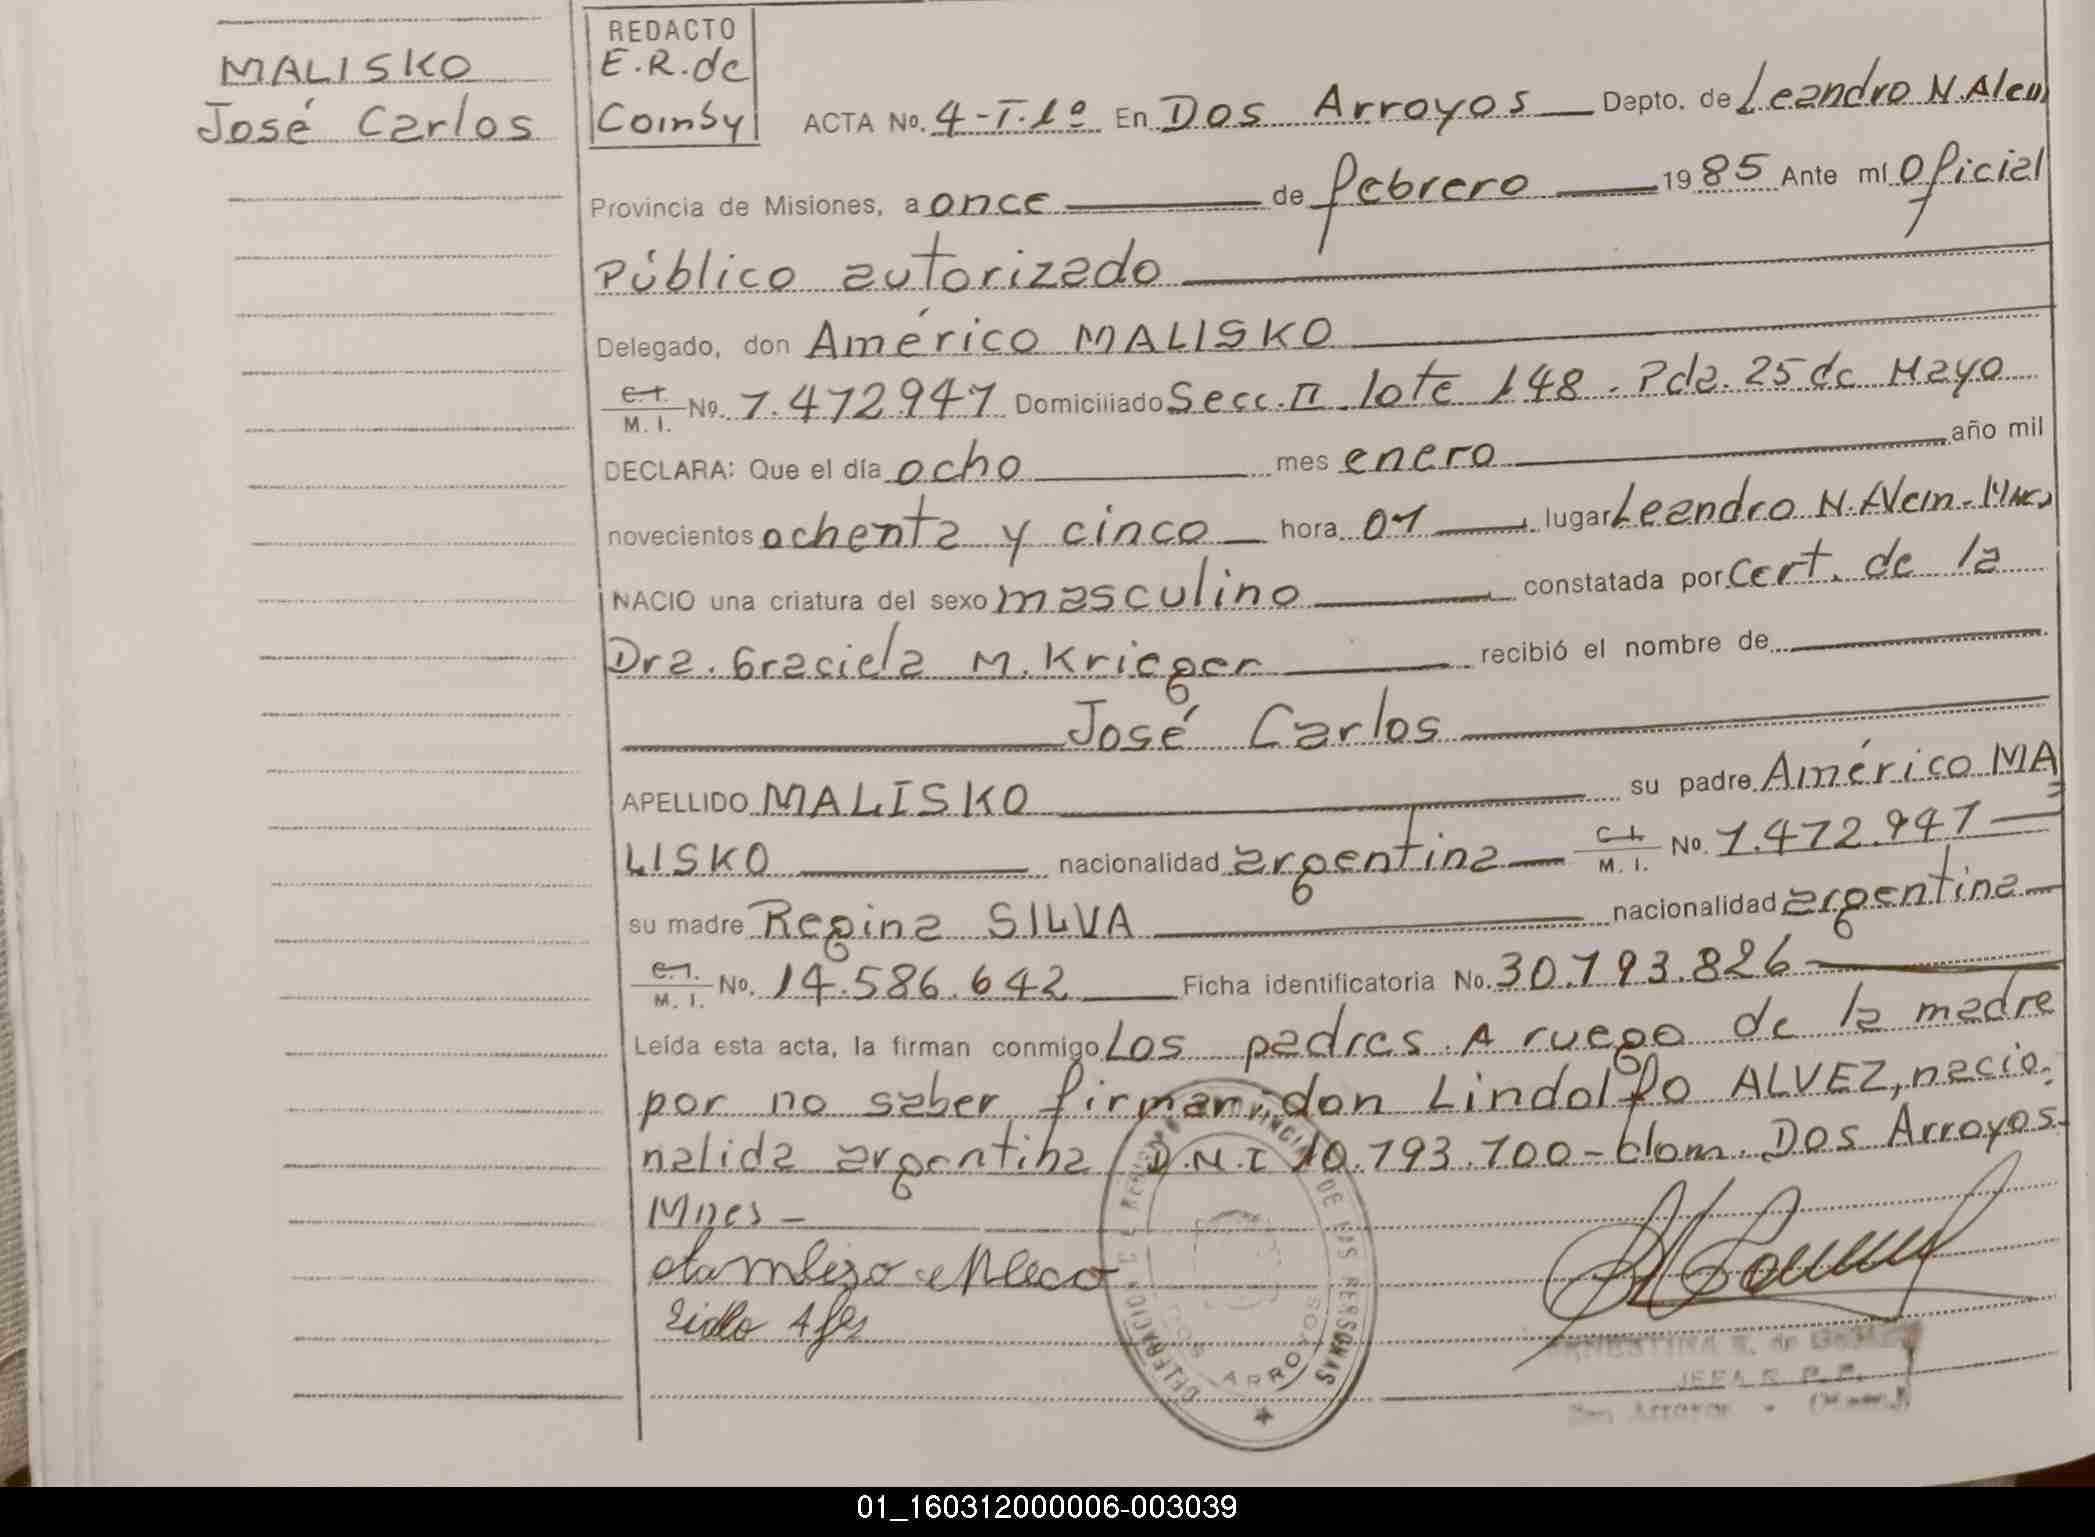 MALISKO
José Carlos
REDACTO
E.R. de
Coinsy
ACTA No. 4-T.1º En Dos Arroyos Depto. de Leandro N. Alem
Provincia de Misiones, a once de febrero 1985 Ante mí Oficial
Público autorizado
Delegado, don Américo MALISKO
C.I. M. I. No. 7.472947 Domiciliado Secc. II lote 148. Pda. 25 de Mayo
DECLARA: Que el día ocho mes enero año mil
novecientos ochenta y cinco hora 07 lugar Leandro N. Alem - Mnes
NACIO una criatura del sexo masculino constatada por Cert. de la
Dra. Graciela M. Krieger recibió el nombre de
José Carlos
APELLIDO MALISKO su padre Américo MA
LISKO nacionalidad argentina C.I. M. I. No. 7.472.947
su madre Regina SILVA nacionalidad argentina
C.I. M. I. No. 14.586.642 Ficha identificatoria No. 30.793.826
Leída esta acta, la firman conmigo Los padres. A ruego de la madre
por no saber firmar, don Lindolfo ALVEZ, nacio-
nalida argentina D.N.I 10.793.700 - dom. Dos Arroyos-
Mnes -
DOS ARROYOS
DE LAS PERSONAS
JEFA R. P. P.
Dos Arroyos - (Mnes.)
01_160312000006-003039